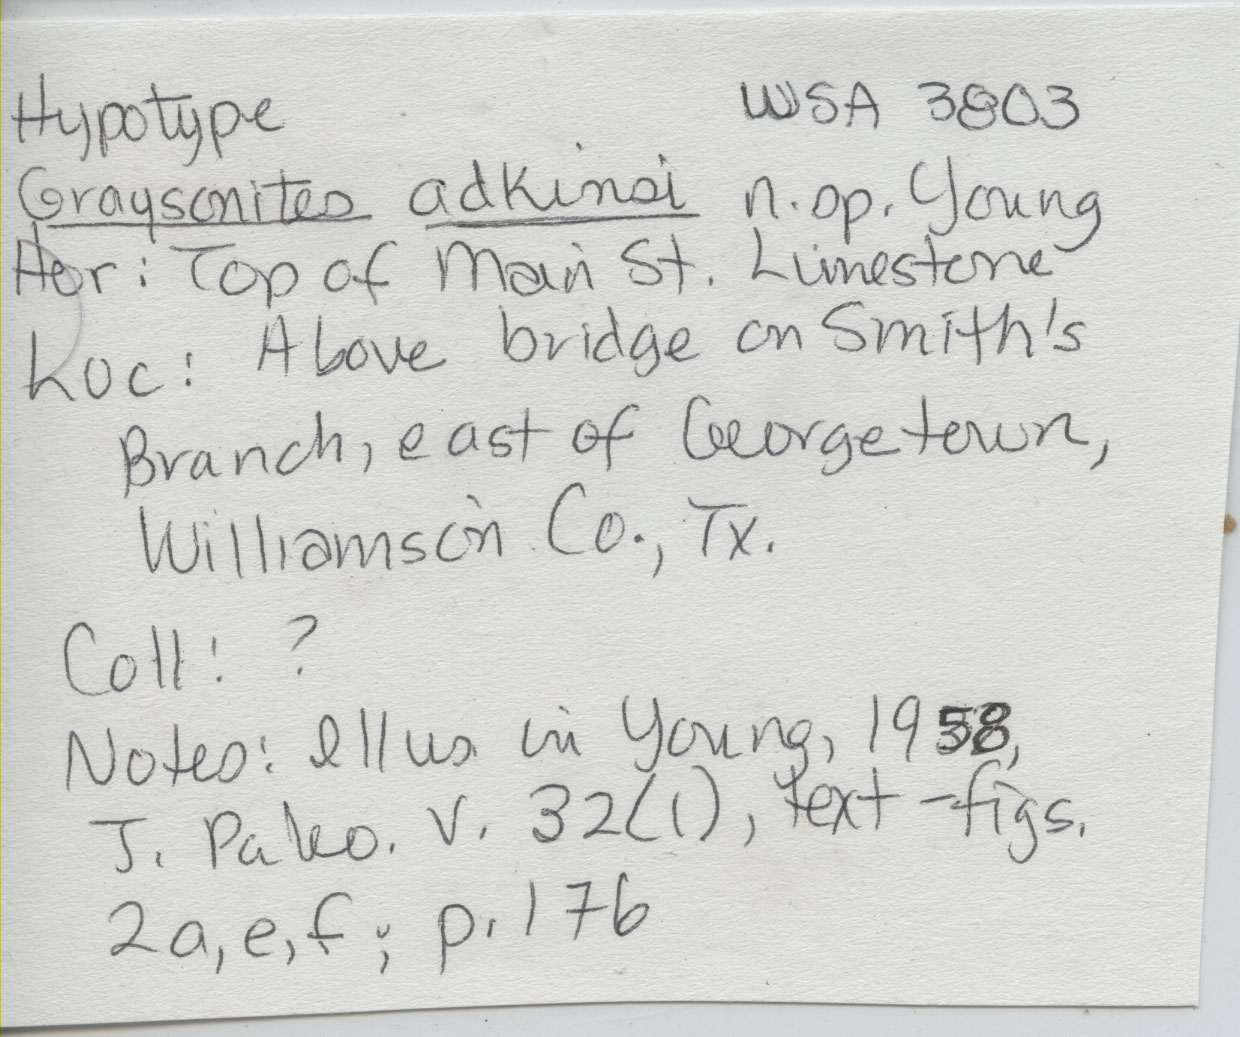 Hypotype WSA 3803
Graysonites adkinsi n. sp. Young
Hor: Top of Main St. Limestone
Loc: Above bridge on Smith's
Branch, east of Georgetown,
Williamson Co., Tx.
Coll: ?
Notes: illus in Young, 1958,
J. Paleo. v. 32(1), text-figs.
2a, e, f; p. 176